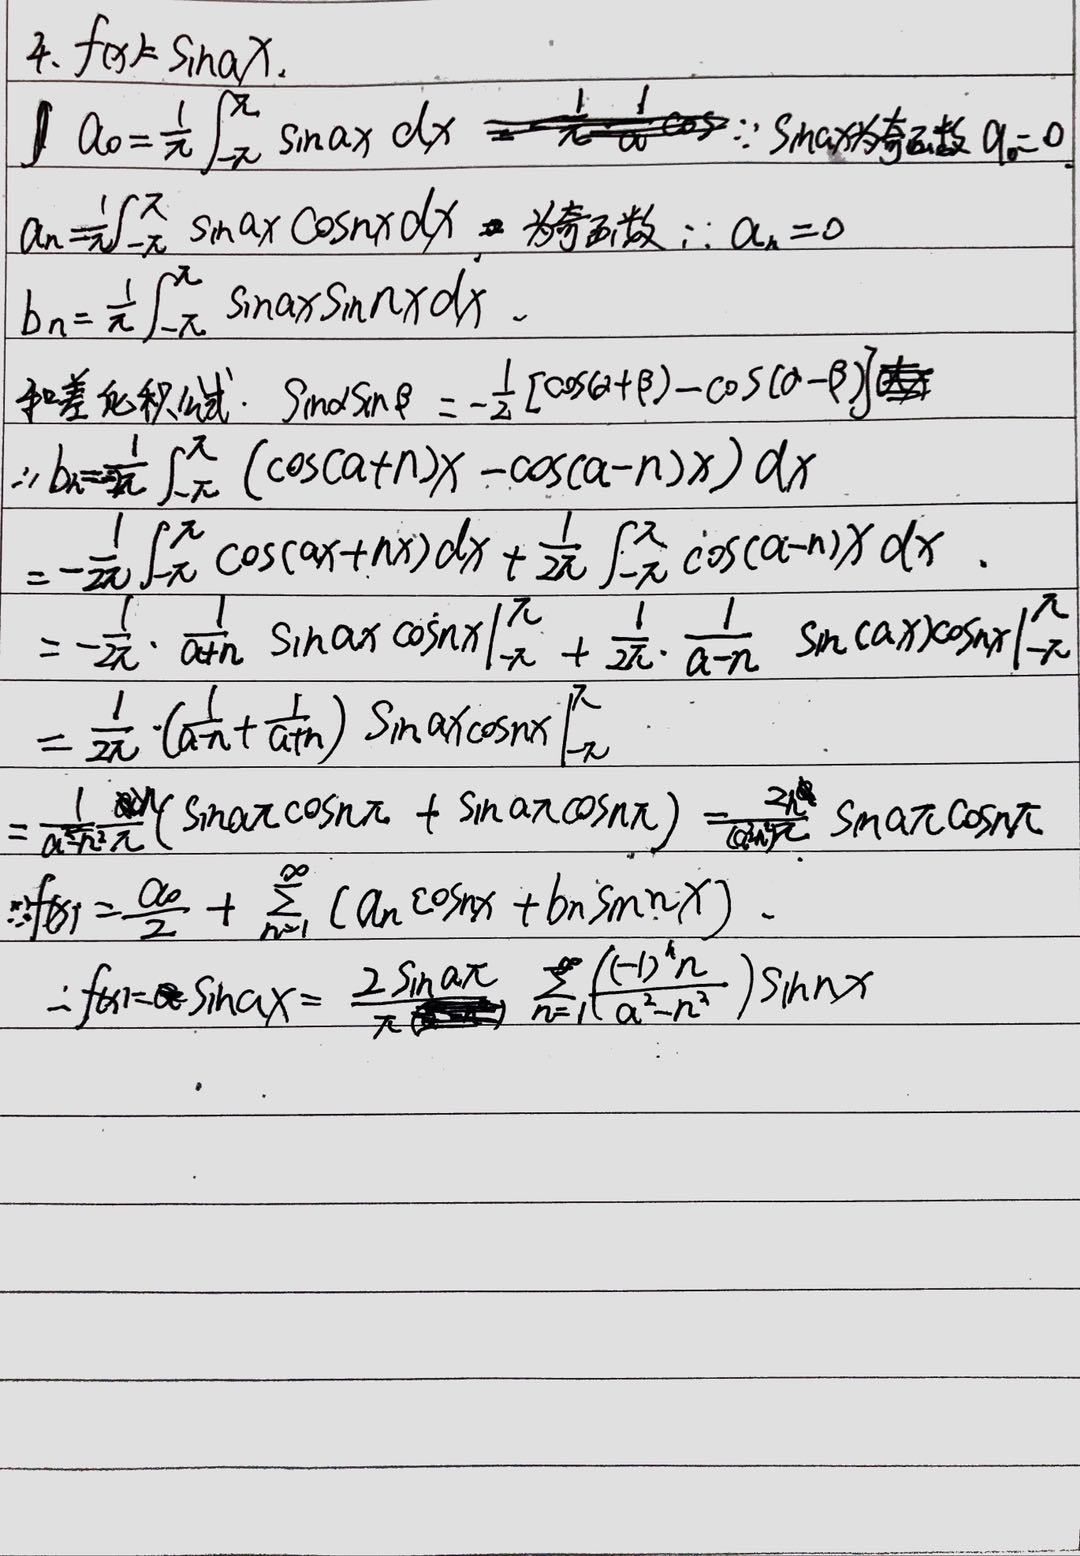 4. f(x)= sinax.
a₀=1/π ∫_{-π}^{π} sinax dx ∵ sinax为奇函数 a₀=0.
aₙ=1/π∫_{-π}^{π} sinax cosnx dx 为奇函数 ∴ aₙ=0
bₙ=1/π ∫_{-π}^{π} sinax sin nx dx.
和差化积公式. sinαsinβ = -1/2 [cos(α+β)-cos(α-β)]
∴ bₙ= ∫_{-π}^{π} (cos(a+n)x -cos(a-n)x) dx
= -1/2π ∫_{-π}^{π} cos(ax+nx)dx + 1/2π ∫_{-π}^{π} cos(a-n)x dx .
= -1/2π · 1/(a+n) sinax cosnx |_{-π}^{π} + 1/2π · 1/(a-n) sin(ax)cosnx |_{-π}^{π}
= 1/2π ·(1/(a-n) + 1/(a+n)) sinaxcosnx |_{-π}^{π}
= 1/(a²-n²) (sinaπ cosnπ + sinaπ cosnπ) = sinaπ cosnπ
f(x) = a₀/2 + ∑_{n=1}^{∞} (aₙ cosnx + bₙ sin nx) .
∴ f(x)= sinax = 2sinaπ/π ∑_{n=1}^{∞} ((-1)ⁿn/(a²-n²)) sinnx